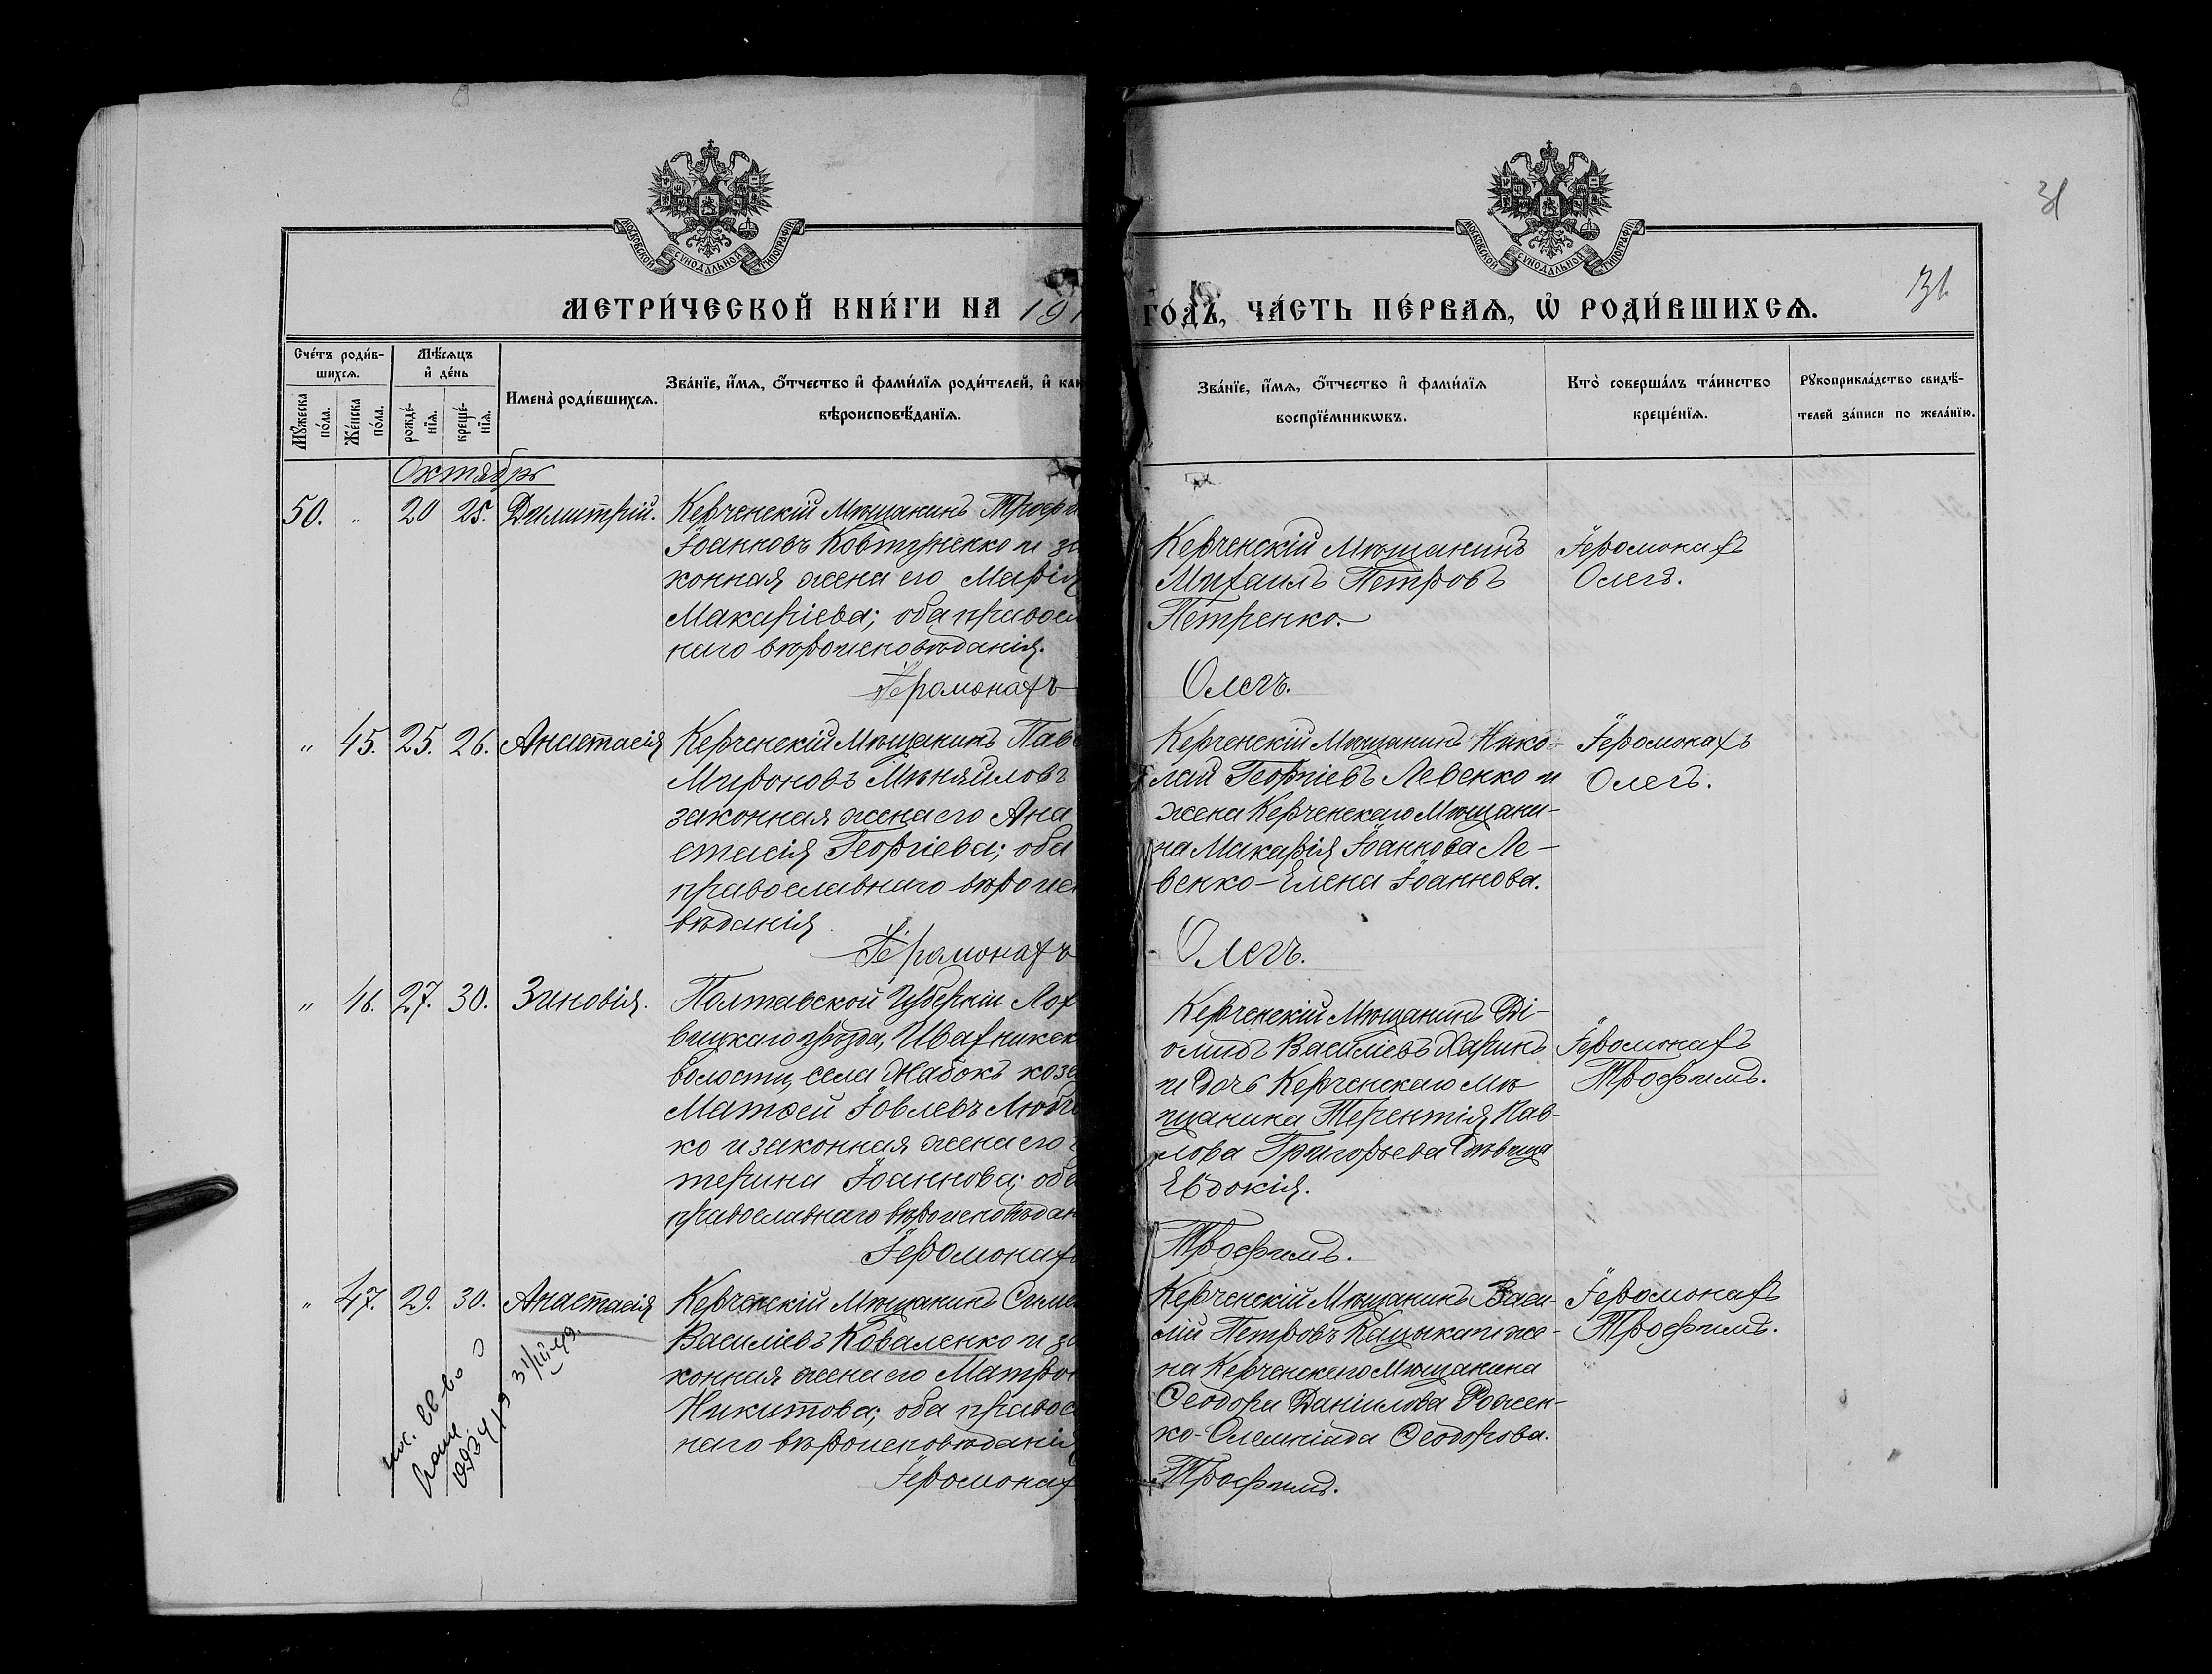 31
МОСКОВСКОЙ СУНОДАЛЬНОЙ ТИПОГРАФІИ
МОСКОВСКОЙ СУНОДАЛЬНОЙ ТИПОГРАФІИ
МЕТРИ́ЧЕСКОЙ КНИ́ГИ НА 191
ГО́ДЪ, ЧА́СТЬ ПЕ́РВАѦ, Ѡ҆ РОДИ́ВШИХСѦ. 31.
Сче́тъ роди́в-
шихсѧ.
Мꙋ́жеска по́ла.
Же́нска по́ла.
Мѣ́сѧцъ
и҆ де́нь
рожде́-
нїѧ.
креще́-
нїѧ.
Имена̀ роди́вшихсѧ.
Зва́нїе, и҆́мѧ, ѻ҆́тчество и҆ фами́лїѧ роди́телей, и҆ как
вѣроисповѣ́данїѧ.
Зва́нїе, и҆́мѧ, ѻ҆́тчество и҆ фами́лїѧ
воспрїе́мникѡвъ.
Кто̀ соверша́лъ та́инство
креще́нїѧ.
Рꙋкоприкла́дство свидѣ́-
телей за́писи по жела́нїю.
Октябрь
50. " 20 25. Димитрій.
Керченскій Мѣщанинъ Трофи
Іоанновъ Ковтуненко и за
конная жена его Марія
Макаріева; оба правосл
наго вѣроисповѣданія.
Іеромонахъ
Керченскій Мѣщанинъ
Михаилъ Петровъ
Петренко.
Олегъ.
Іеромонахъ
Олегъ.
" 45. 25. 26. Анастасія
Керченскій Мѣщанинъ Пав
Мироновъ Мѣняйловъ
законная жена его Ана
стасія Георгіева; оба
православнаго вѣроис
вѣданія.
Іеромонахъ
Керченскій Мѣщанинъ Нико-
лай Георгіевъ Левенко и
жена Керченскаго Мѣщани-
на Макарія Іоаннова Ле-
венко-Елена Іоаннова.
Олегъ.
Іеромонахъ
Олегъ.
" 46. 27. 30. Зиновія.
Полтавской Губерніи Лох
вицкаго уѣзда, Ивахникск
волости, села Жабокъ коза
Матѳей Іовлевъ Любч
ко и законная жена его
терина Іоаннова; оба
православнаго вѣроисповѣдан
Іеромонахъ
Керченскій Мѣщанинъ Ді-
омидъ Василіевъ Харинъ
и дочь Керченскаго Мѣ
щанина Терентія Пав-
лова Григорьева дѣвица
Евдокія.
Трофимъ.
Іеромонахъ
Трофимъ.
" 47. 29. 30. Анастасія
Керченскій Мѣщанинъ Симе
Василіевъ Коваленко и за
конная жена его Матрон
Никитова; оба правосл
наго вѣроисповѣданія
Іеромонахъ
Керченскій Мѣщанинъ Васи-
лій Петровъ Кацыка и же-
на Керченскаго Мѣщанина
Ѳеодора Даніилова Рожен-
ко-Олемпіада Ѳеодорова.
Трофимъ.
Іеромонахъ
Трофимъ.